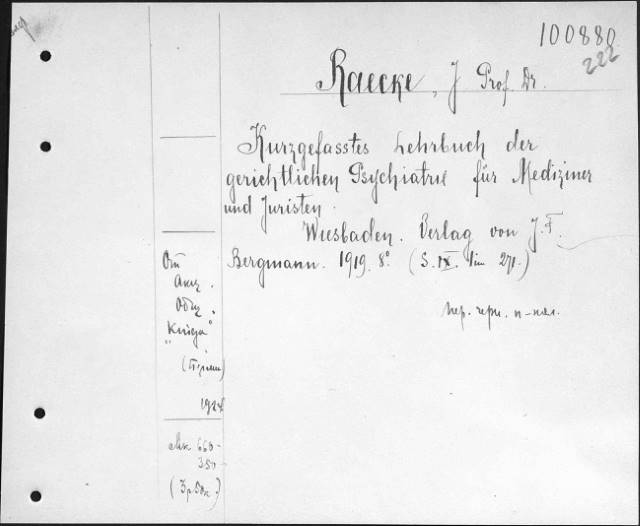 100880
222
Raecke, J Prof. Dr.
Kurzgefasstes Lehrbuch der
gerichtlichen Psychiatrie für Mediziner
und Juristen.
Wiesbaden. Verlag von J. F.
Bergmann. 1919. 8° (S. IX. 271.)
От
Акц.
Общ.
"Книга"
1924
660-
350-